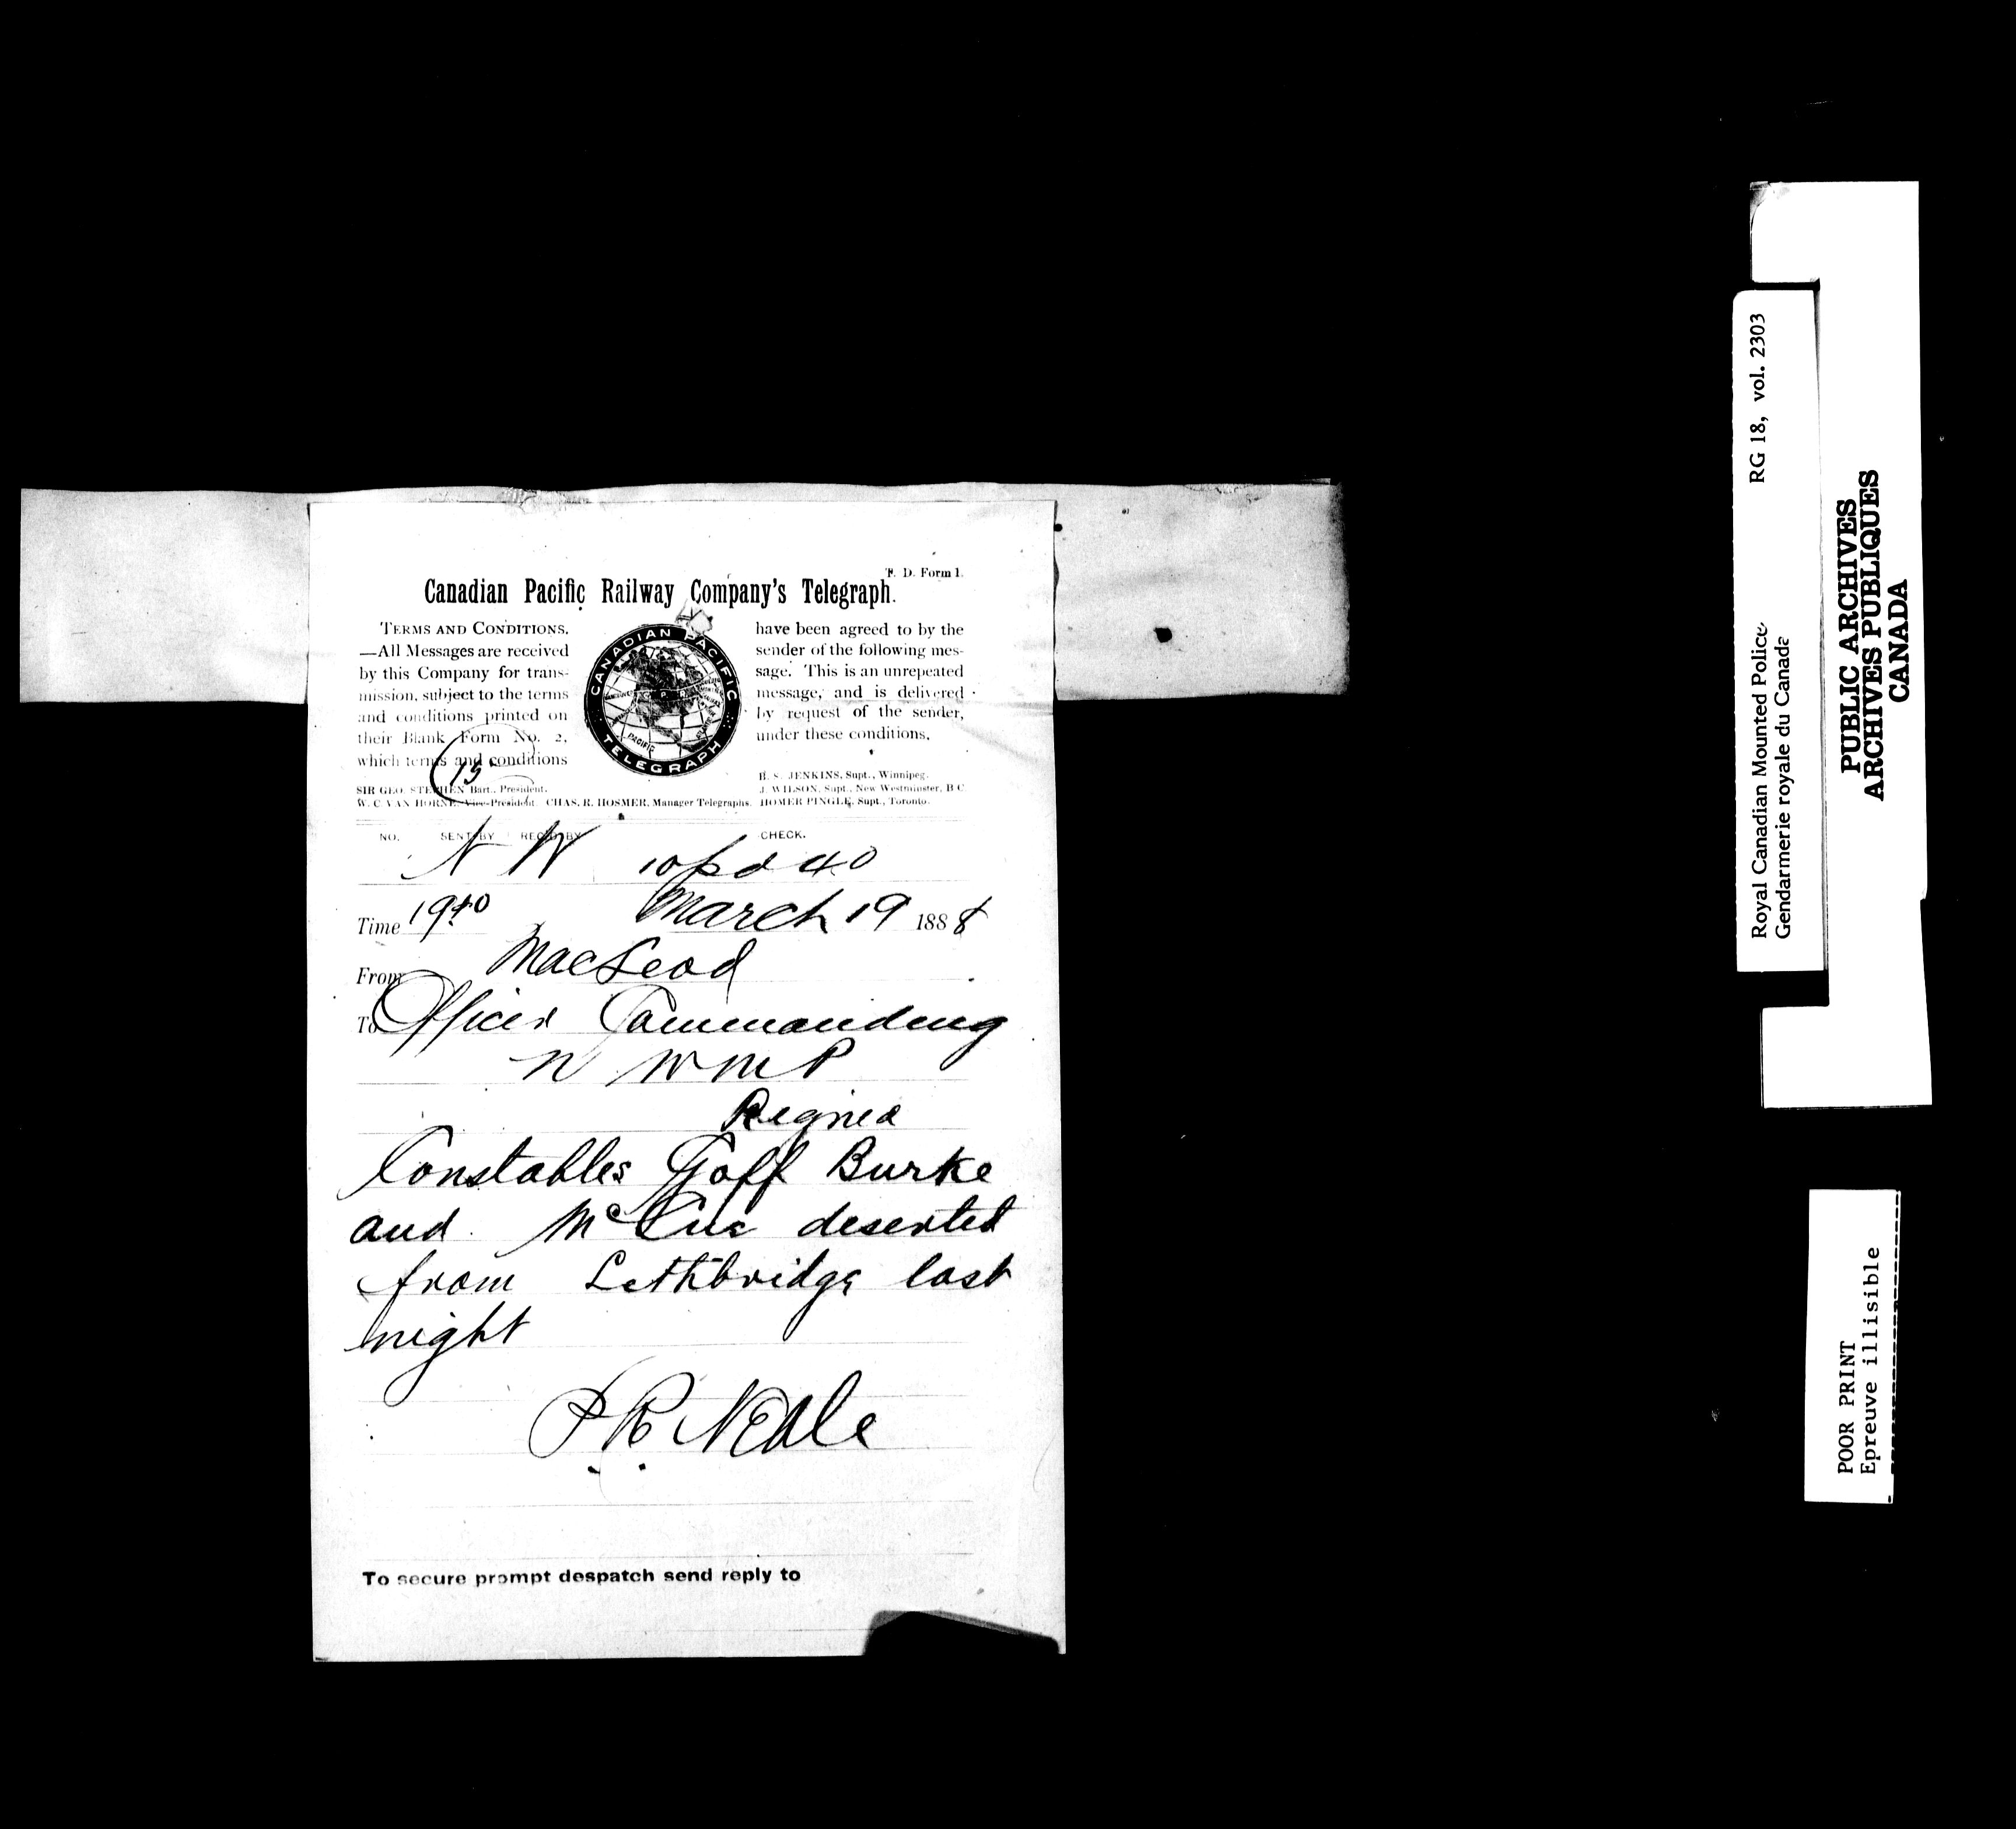 T. D. Form 1.
Canadian Pacific Railway Company's Telegraph.
TERMS AND CONDITIONS.
—All Messages are received
by this Company for trans-
mission, subject to the terms
and conditions printed on
their Blank Form No. 2,
which terms and conditions
have been agreed to by the
sender of the following mes-
sage. This is an unrepeated
message, and is delivered
by request of the sender,
under these conditions.
CANADIAN PACIFIC
TELEGRAPH
15
SIR GEO. STEPHEN Bart., President.
W. C. VAN HORNE, Vice-President. CHAS. R. HOSMER, Manager Telegraphs.
H. S. JENKINS, Supt., Winnipeg.
J. WILSON, Supt., New Westminster, B C.
HOMER PINGLE, Supt., Toronto.
NO. SENT BY REC'D BY CHECK.
N W 10 pd 40
Time 19 40 March 19 1888
From MacLeod
To Officer Commanding
N W M P
Regina
Constables Goff Burke
and McCue deserted
from Lethbridge last
night
P R Neale
To secure prompt despatch send reply to
Royal Canadian Mounted Police RG 18, vol. 2303
Gendarmerie royale du Canada
PUBLIC ARCHIVES
ARCHIVES PUBLIQUES
CANADA
POOR PRINT
Epreuve illisible